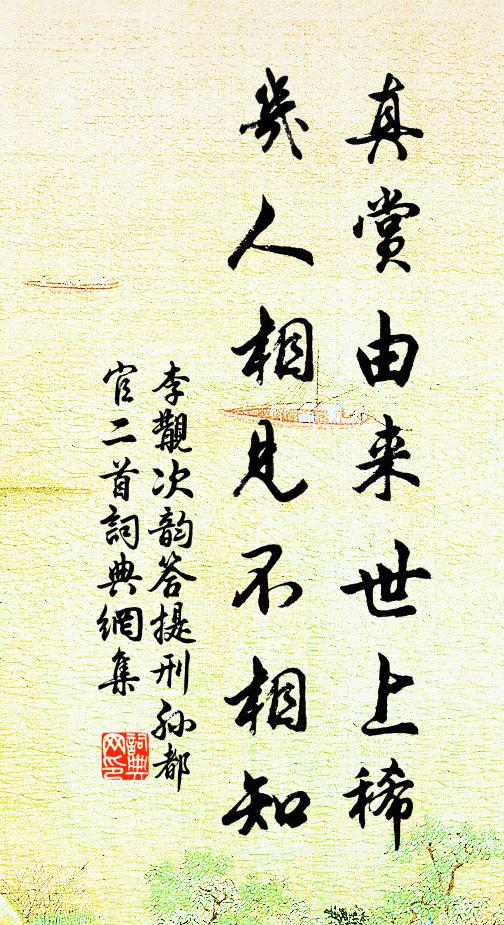 真赏由来世上稀
幾人相見不相知
李覯次韵答提刑孙都
官二首詞典網集
詞典
网印